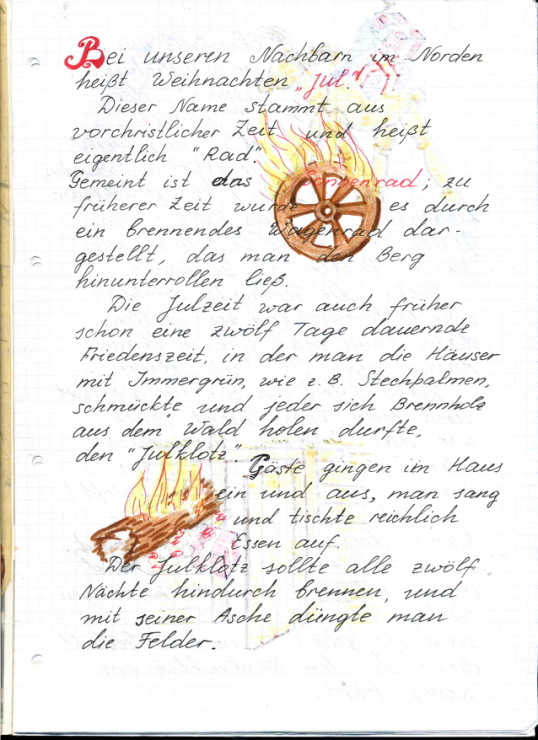 Bei unseren Nachbarn im Norden
heißt Weihnachten „Jul".
Dieser Name stammt aus
vorchristlicher Zeit und heißt
eigentlich "Rad".
Gemeint ist das Sonnenrad; zu
früherer Zeit wurde es durch
ein brennendes Wagenrad dar-
gestellt, das man den Berg
hinunterrollen ließ.
Die Julzeit war auch früher
schon eine zwölf Tage dauernde
Friedenszeit, in der man die Häuser
mit Immergrün, wie z. B. Stechpalmen,
schmückte und jeder sich Brennholz
aus dem Wald holen durfte,
den "Julklotz"
Gäste gingen im Haus
ein und aus, man sang
und tischte reichlich
Essen auf.
Der Julklotz sollte alle zwölf
Nächte hindurch brennen, und
mit seiner Asche düngte man
die Felder.